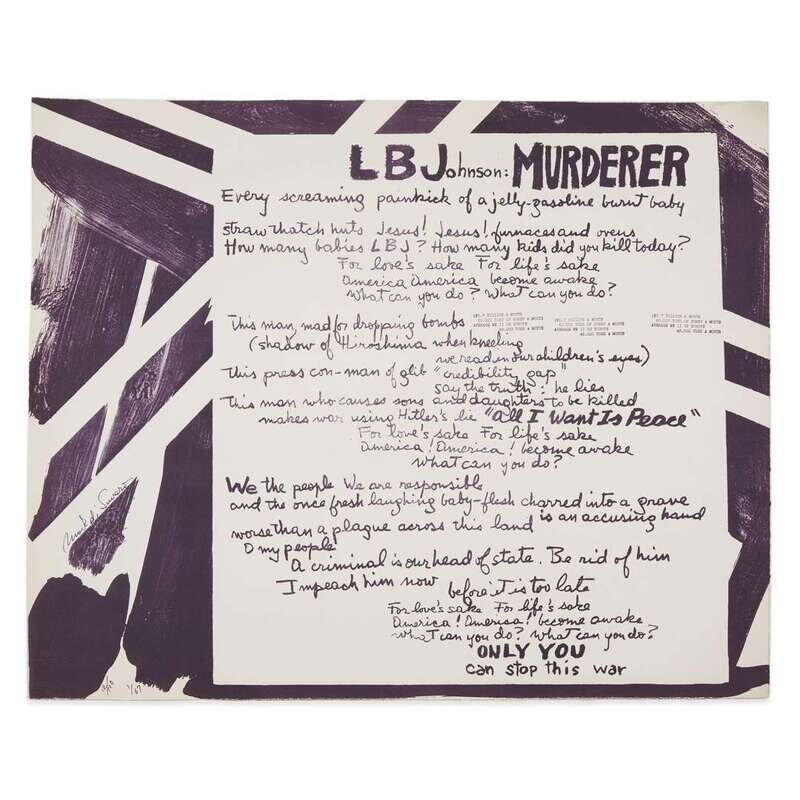 LBJohnson: MURDERER
Every screaming painkick of a jelly-gasoline burnt baby
straw thatch huts Jesus! Jesus! furnaces and ovens
How many babies LBJ? How many kids did you kill today?
For love's sake For life's sake
America America become awake
What can you do? What can you do?
This man, mad for dropping bombs
(shadow of Hiroshima when kneeling
we read in our children's eyes)
This press con-man of glib "credibility gap"
say the truth! he lies
This man who causes sons and daughters to be killed
makes war using Hitler's lie "All I Want Is Peace"
For love's sake For life's sake
America! America! become awake
What can you do?
We the people We are responsible
and the once fresh laughing baby-flesh charred into a grave
is an accusing hand
worse than a plague across this land
O my people
A criminal is our head of state. Be rid of him
Impeach him now before it is too late
For love's sake For life's sake
America! America! become awake
What can you do? What can you do?
ONLY YOU
can stop this war
Mark di Suvero